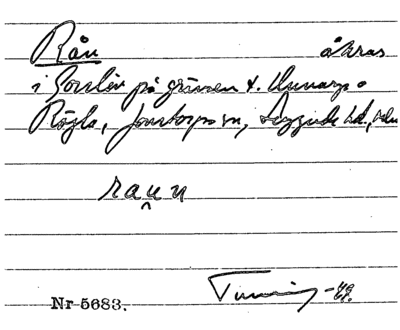 Rån åkras
i Gonlöv på gränsen t. Unnarp o
Rögla, Jonstorps sn, Luggude hd,
raun
Nr 5683. -49